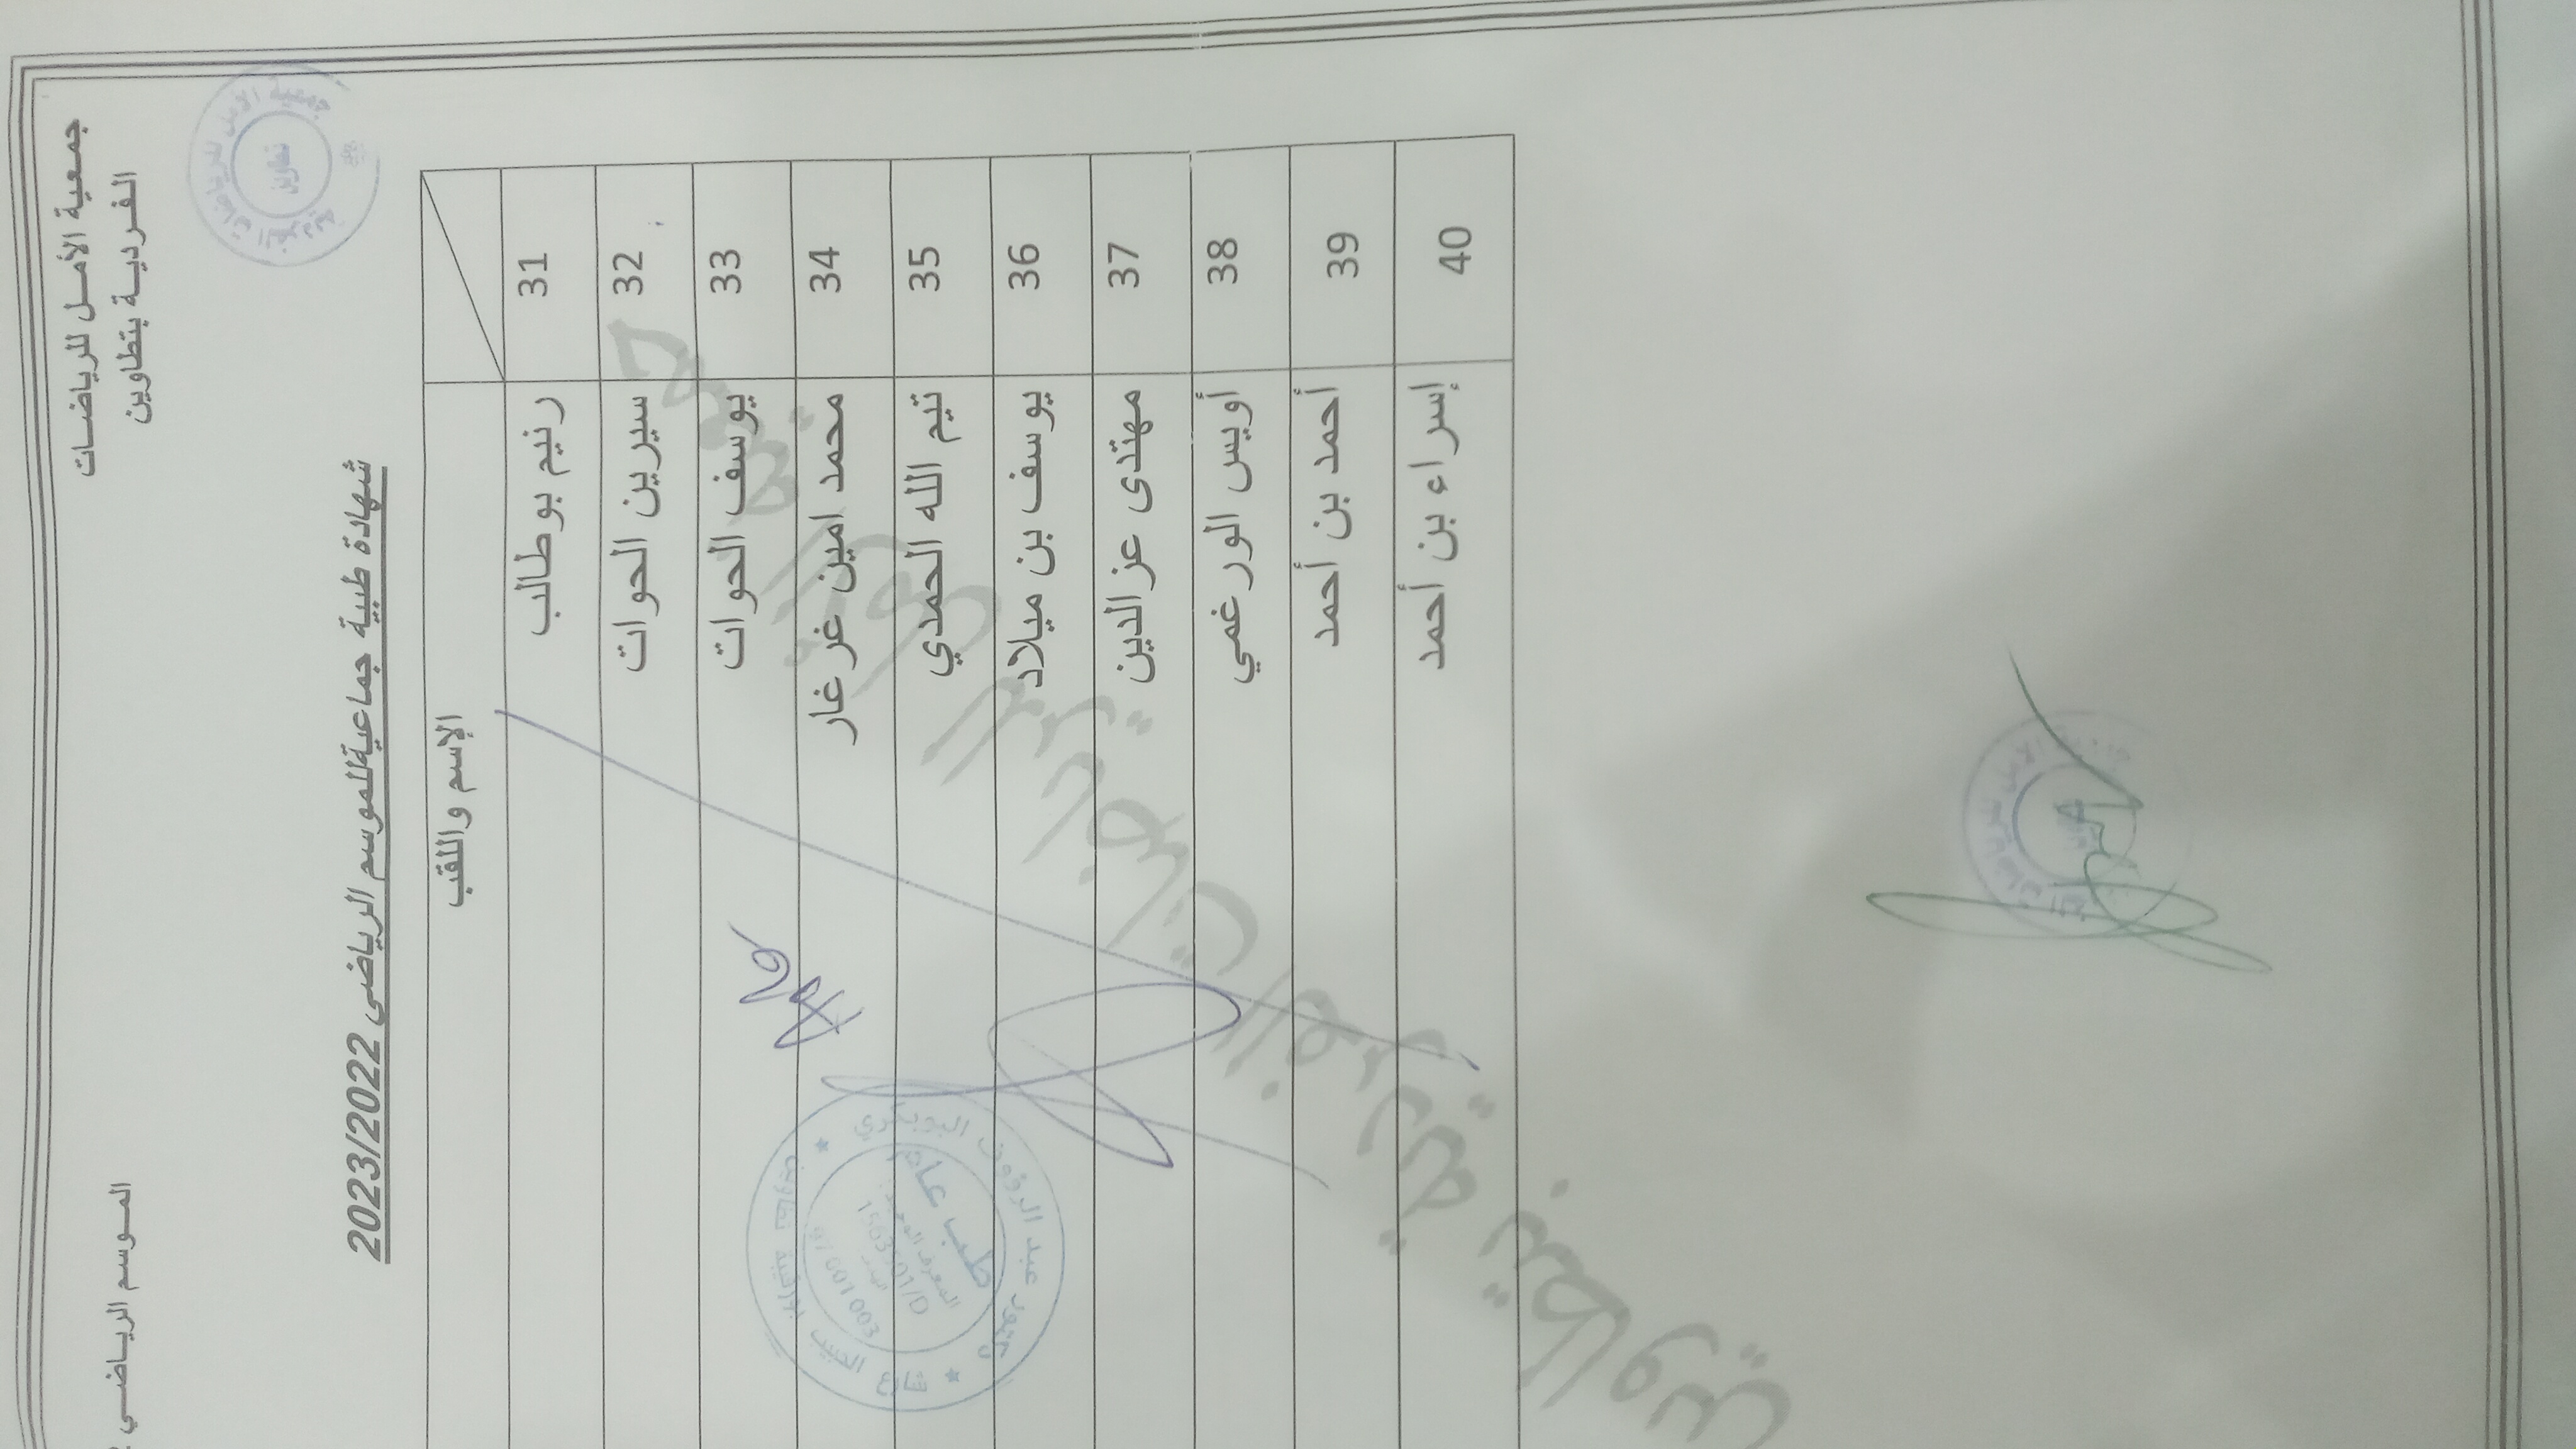 جمعية الأمل للرياضات
الفردية بتطاوين
الموسم الرياضي
شهادة طبية جماعية للموسم الرياضي 2023/2022
الإسم واللقب
31 رنيم بوطالب
32 سيرين الحوات
33 يوسف الحوات
34 محمد امين غرغار
35 تيم الله الحمدي
36 يوسف بن ميلاد
37 مهتدى عزالدين
38 أويس الورغمي
39 أحمد بن أحمد
40 إسراء بن أحمد
جمعية الأمل للرياضات الفردية بتطاوين
جمعية الأمل للرياضات الفردية
تطاوين
عبد الرؤوف البوبكري
طب عام